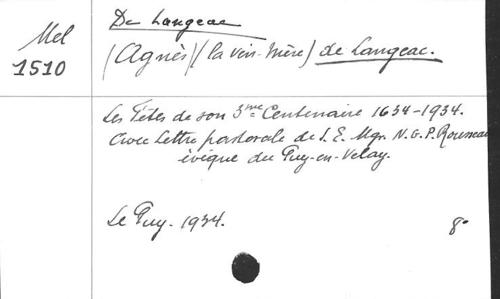 Mel
1510
De Langeac
(Agnès) (la Vén. Mère) de Langeac.
Les Fêtes de son 3me Centenaire 1634-1934.
Avec Lettre pastorale de S. E. Mgr. N. G. P. Rousseau
évêque du Puy-en-Velay.
Le Puy. 1934.
8°